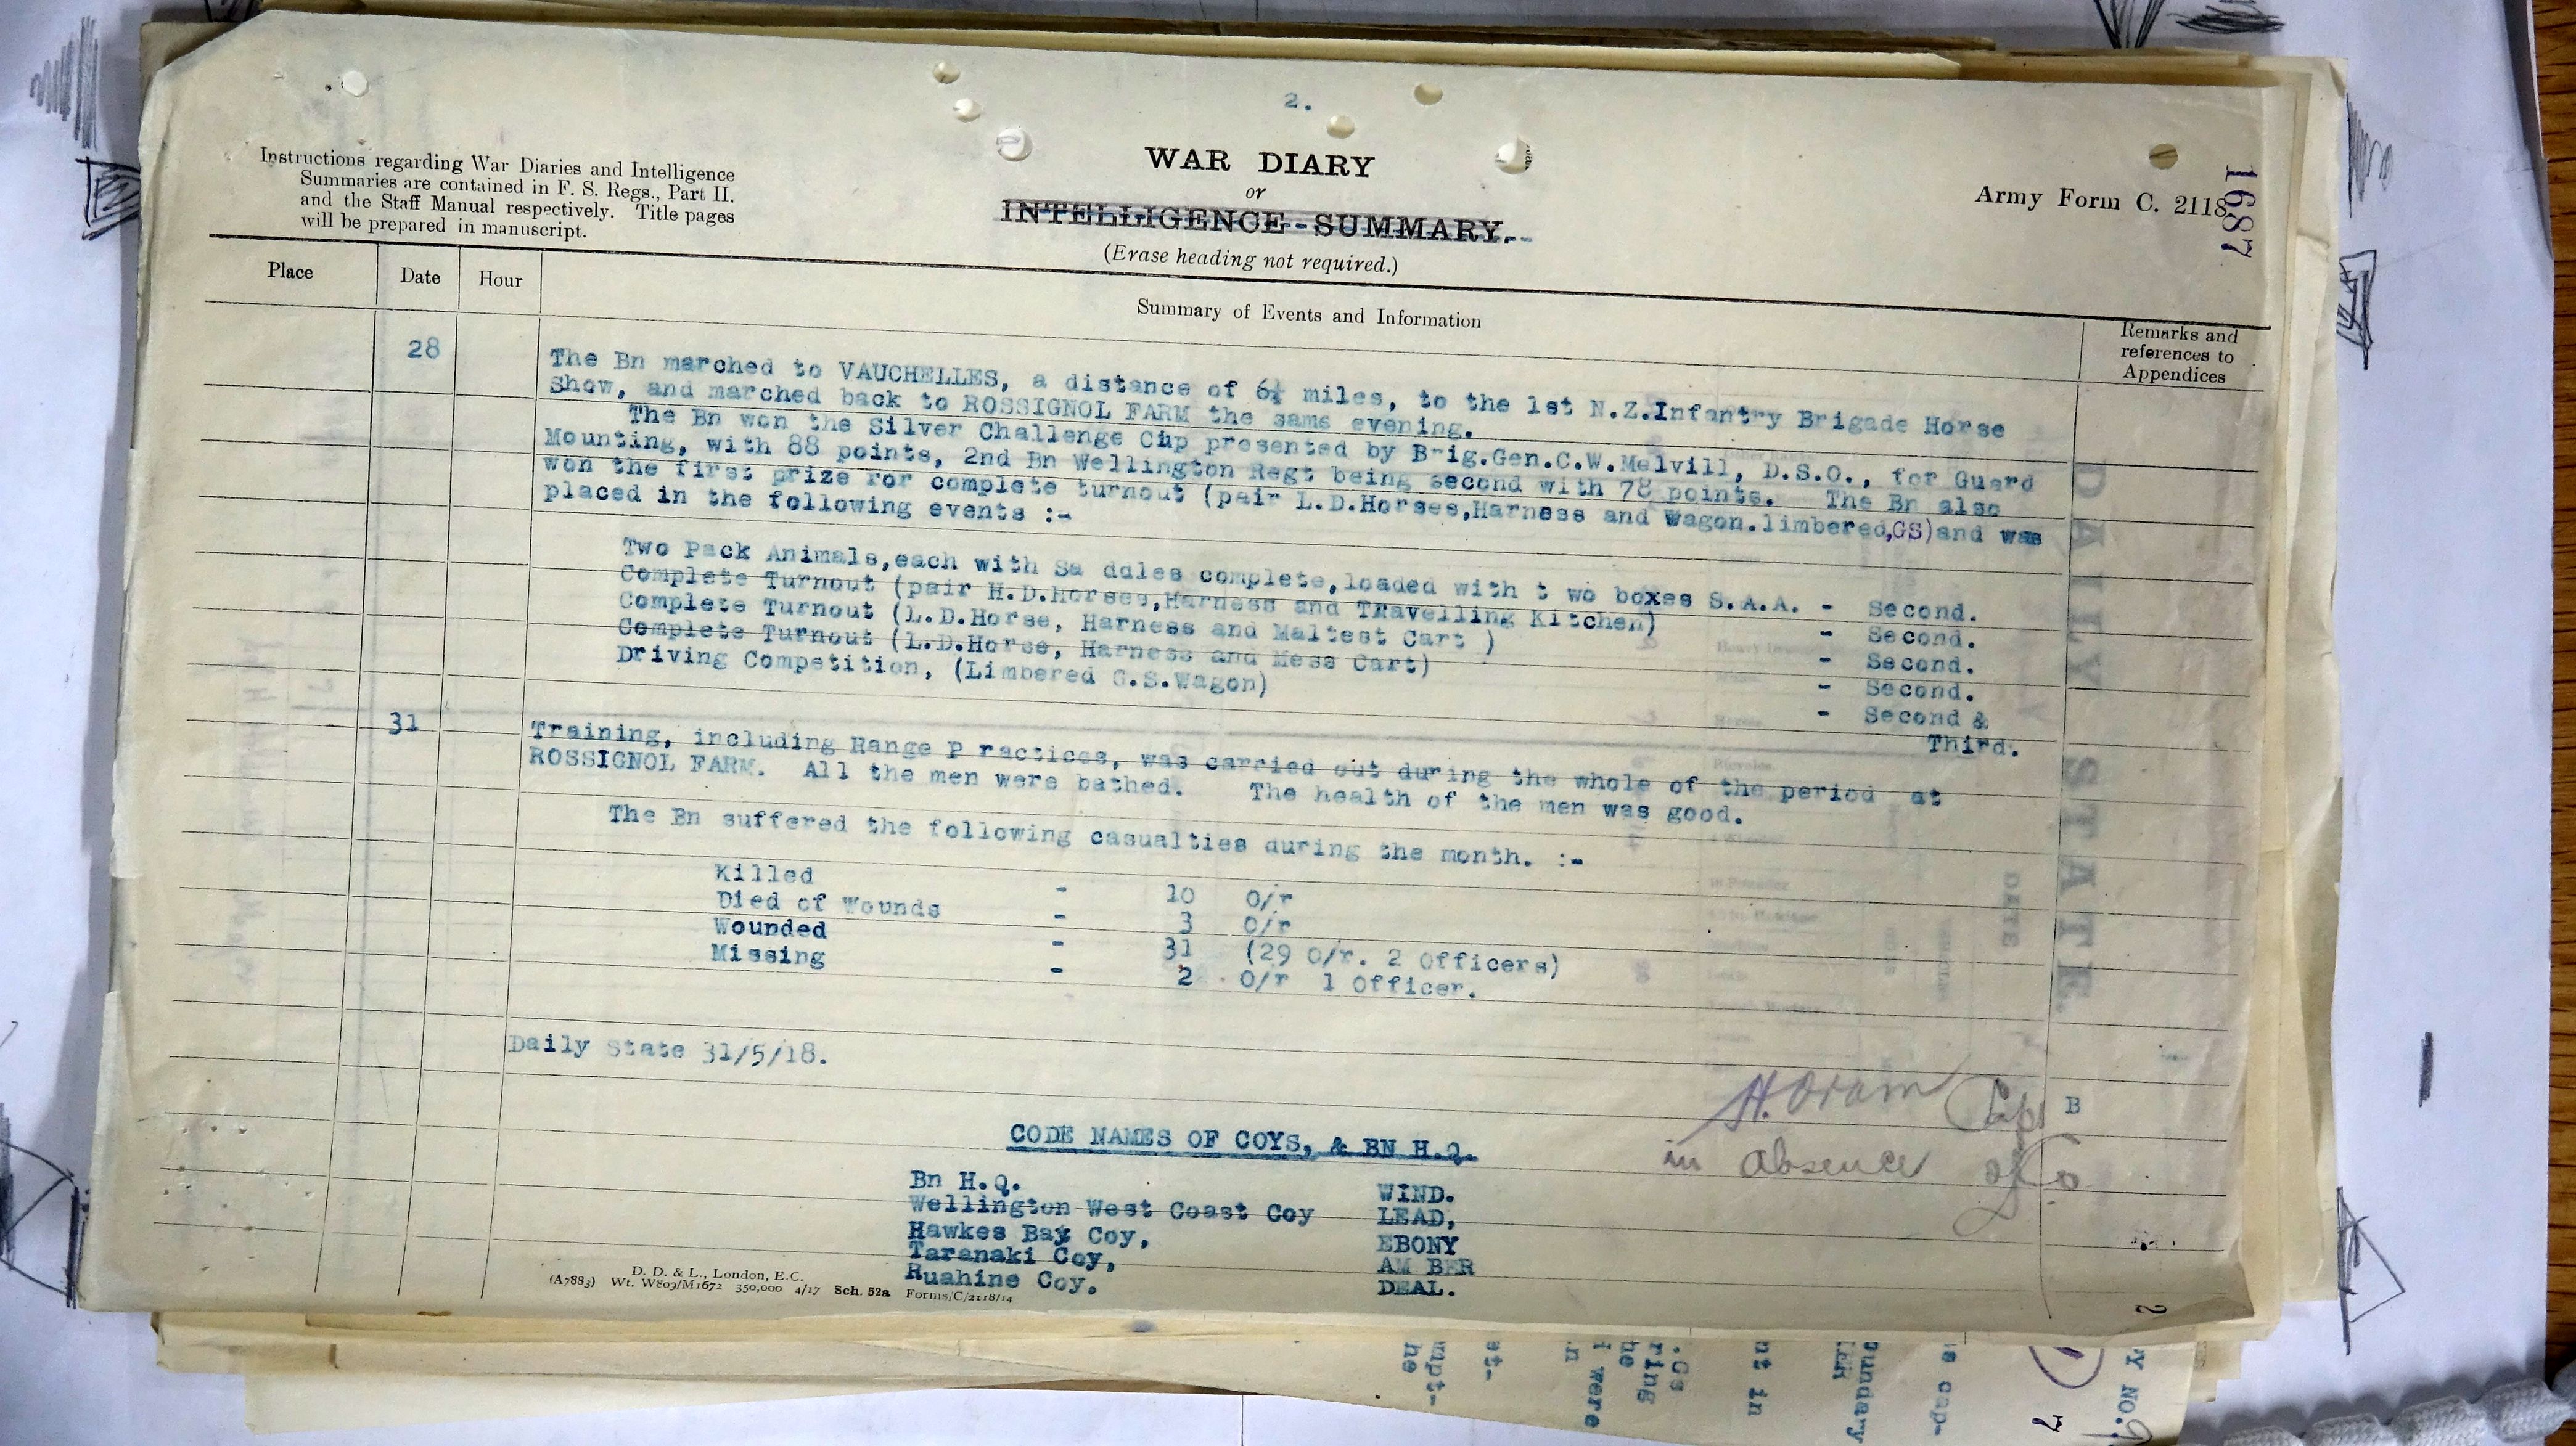 2.
Instructions regarding War Diaries and Intelligence
Summaries are contained in F. S. Regs., Part II.
and the Staff Manual respectively. Title pages
will be prepared in manuscript.
WAR DIARY
or
INTELLIGENCE SUMMARY.
(Erase heading not required.)
Army Form C. 2118
1687
Place Date Hour Summary of Events and Information Remarks and references to Appendices
28 The Bn marched to VAUCHELLES, a distance of 6½ miles, to the 1st N.Z.Infantry Brigade Horse
Show, and marched back to ROSSIGNOL FARM the same evening.
The Bn won the Silver Challenge Cup presented by Brig.Gen.C.W.Melvill, D.S.O., for Guard
Mounting, with 88 points, 2nd Bn Wellington Regt being second with 78 points. The Bn also
won the first prize for complete turnout (pair L.D.Horses,Harness and Wagon.limbered,GS)and was
placed in the following events :-
Two Pack Animals,each with Sa ddles complete,loaded with t wo boxes S.A.A. - Second.
Complete Turnout (pair H.D.Horses,Harness and Travelling Kitchen) - Second.
Complete Turnout (L.D.Horse, Harness and Maltest Cart ) - Second.
Complete Turnout (L.D.Horse, Harness and Mess Cart) - Second.
Driving Competition, (Limbered G.S.Wagon) - Second &
Third.
31 Training, including Range P ractices, was carried out during the whole of the period at
ROSSIGNOL FARM. All the men were bathed. The health of the men was good.
The Bn suffered the following casualties during the month. :-
Killed - 10 O/r
Died of Wounds - 3 O/r
Wounded - 31 (29 O/r. 2 Officers)
Missing - 2 O/r 1 Officer.
Daily State 31/5/18. B
H. Oram Capt
in absence of Co
CODE NAMES OF COYS, & BN H.Q.
Bn H.Q. WIND.
Wellington West Coast Coy LEAD,
Hawkes Bay Coy, EBONY
Taranaki Coy, AM BER
Ruahine Coy. DEAL.
D. D. & L., London, E.C.
(A7883) Wt. W809/M1672 350,000 4/17 Sch. 52a Forms/C/2118/14
2
DAILY STATE.
DATE
7